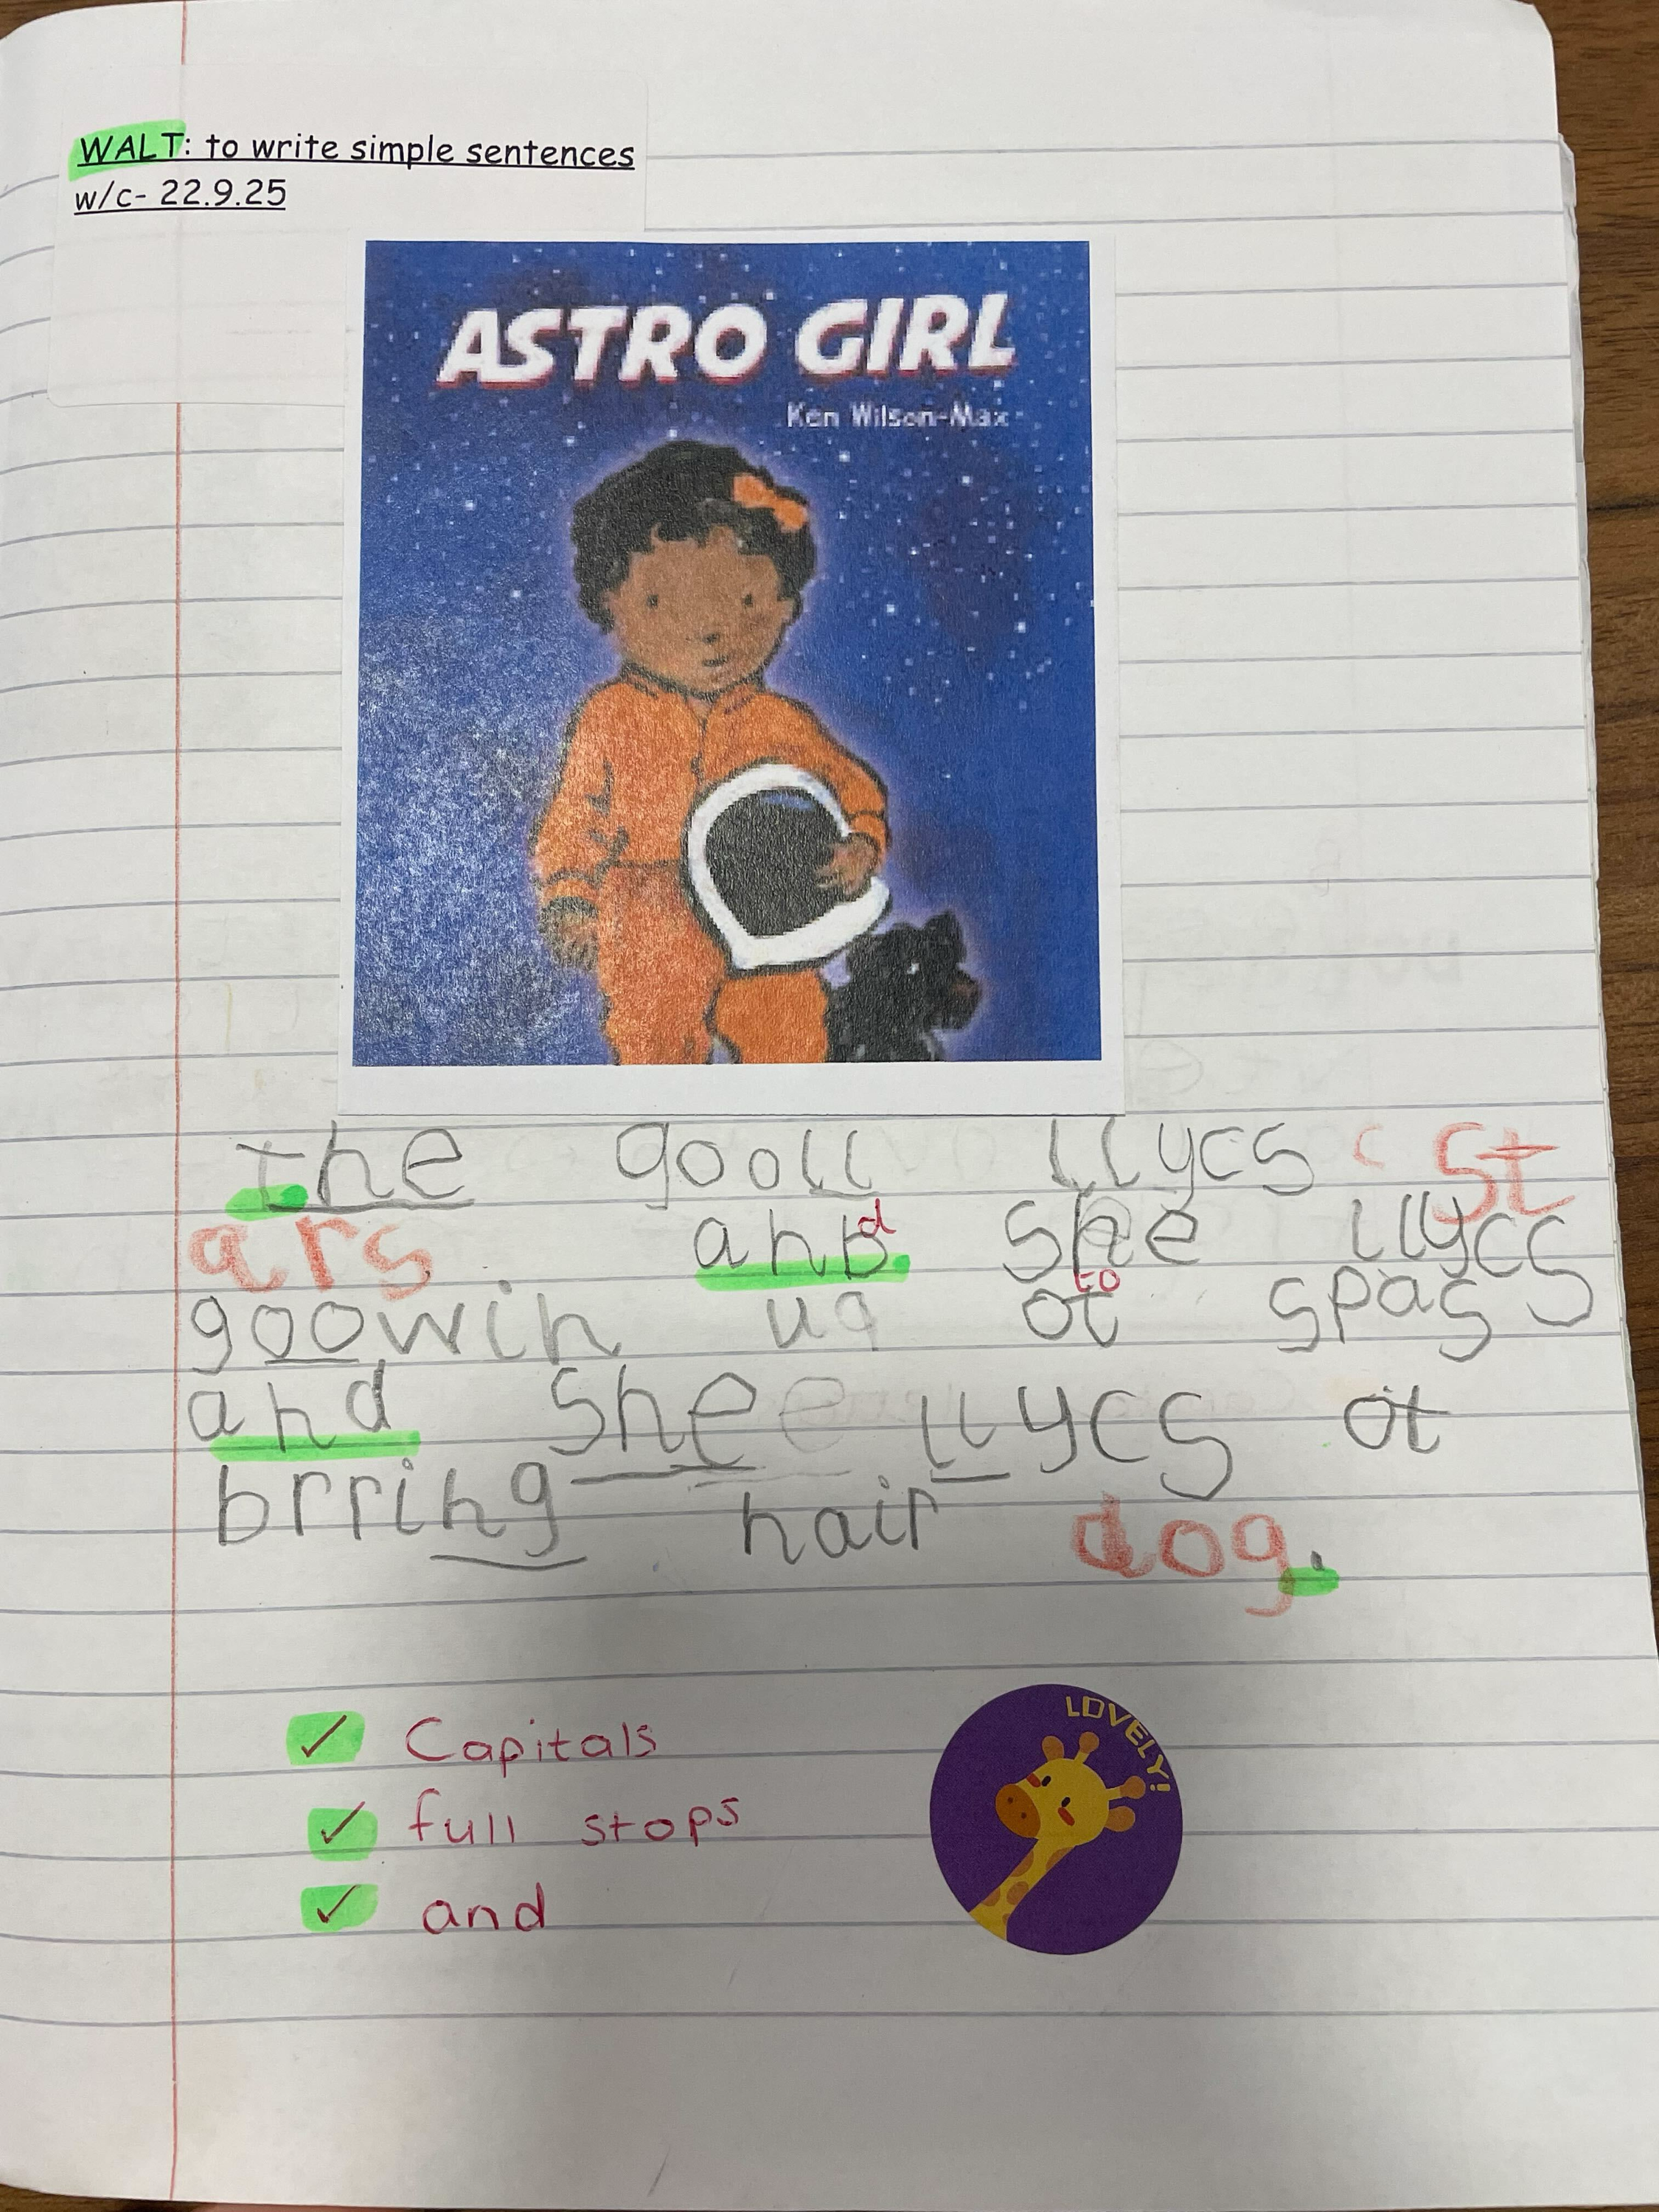 WALT: to write simple sentences
w/c- 22.9.25
ASTRO GIRL
Ken Wilson-Max
The gooll llycs c st
ars anb d she llycs
goowin uq ot to spas
and shee llycs ot
brring hair dog.
✓ Capitals
✓ full stops
✓ and
LOVELY!